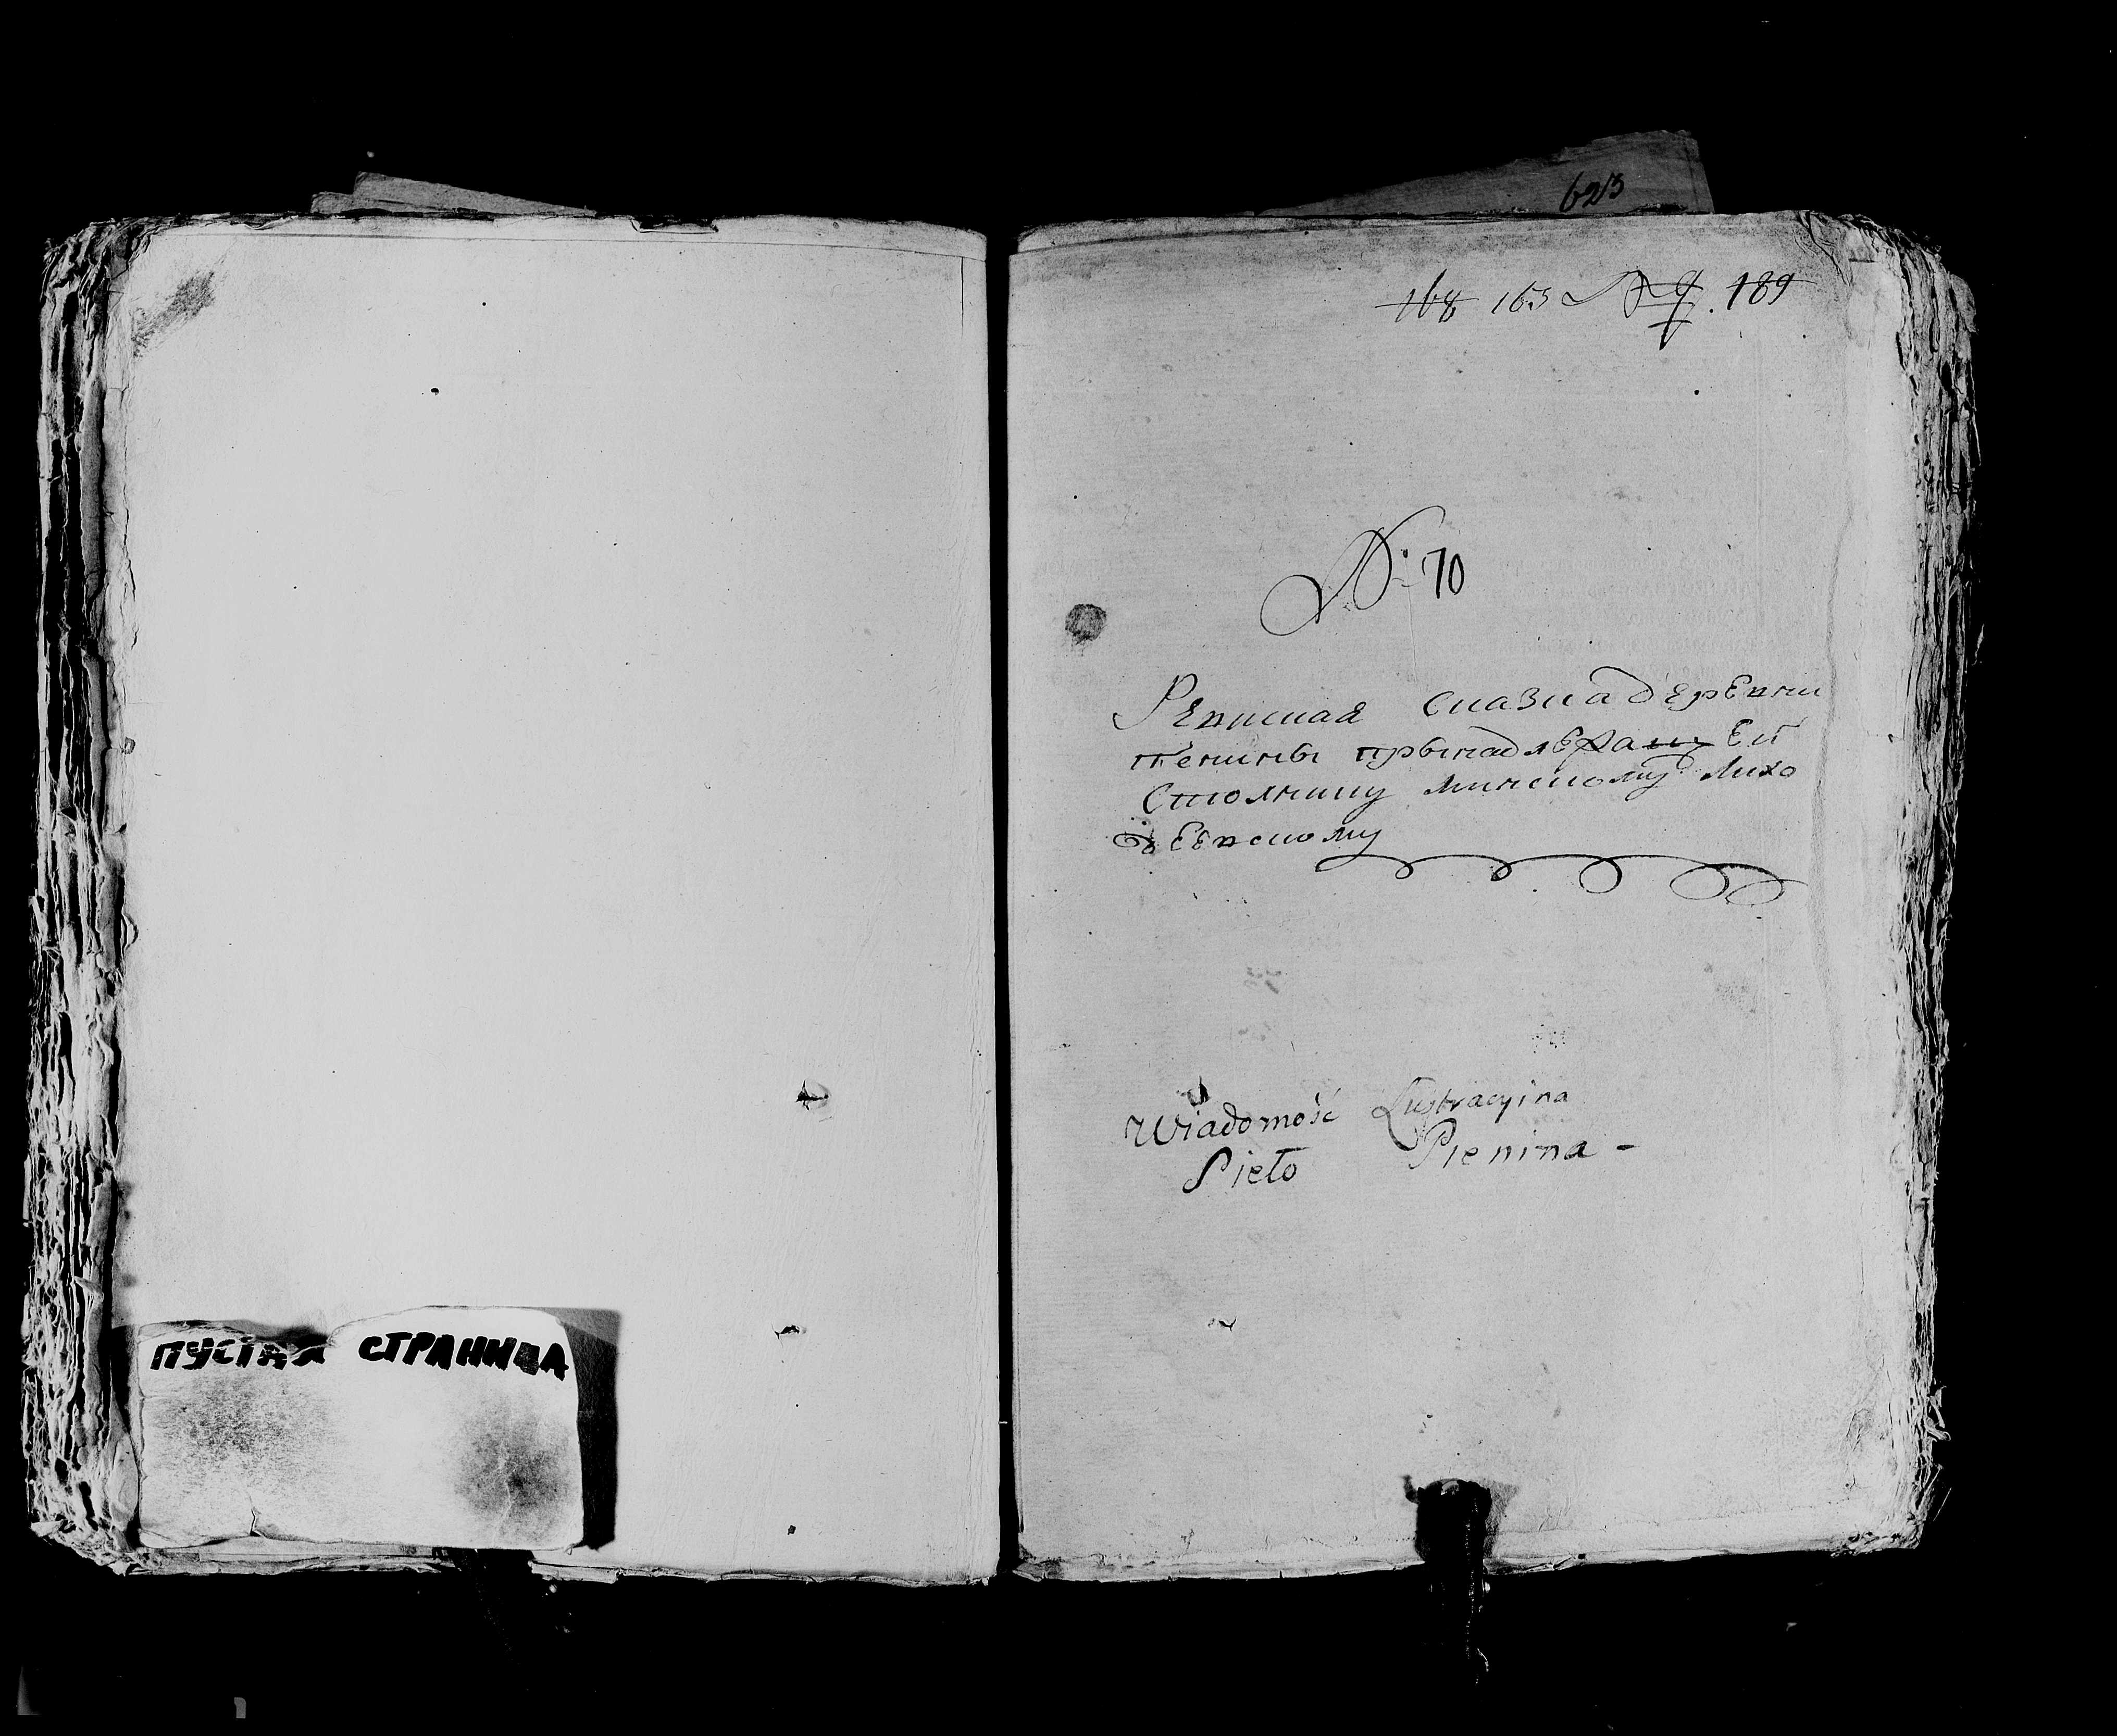 ПУСТАЯ СТРАНИЦА
623
168 163 189
№ 70
Ревиская сказка деревни
пенины прынадлежащей
Столнику минскому Лихо
деевскому
Wiadomość Lustracyina
Sieło Pienina -